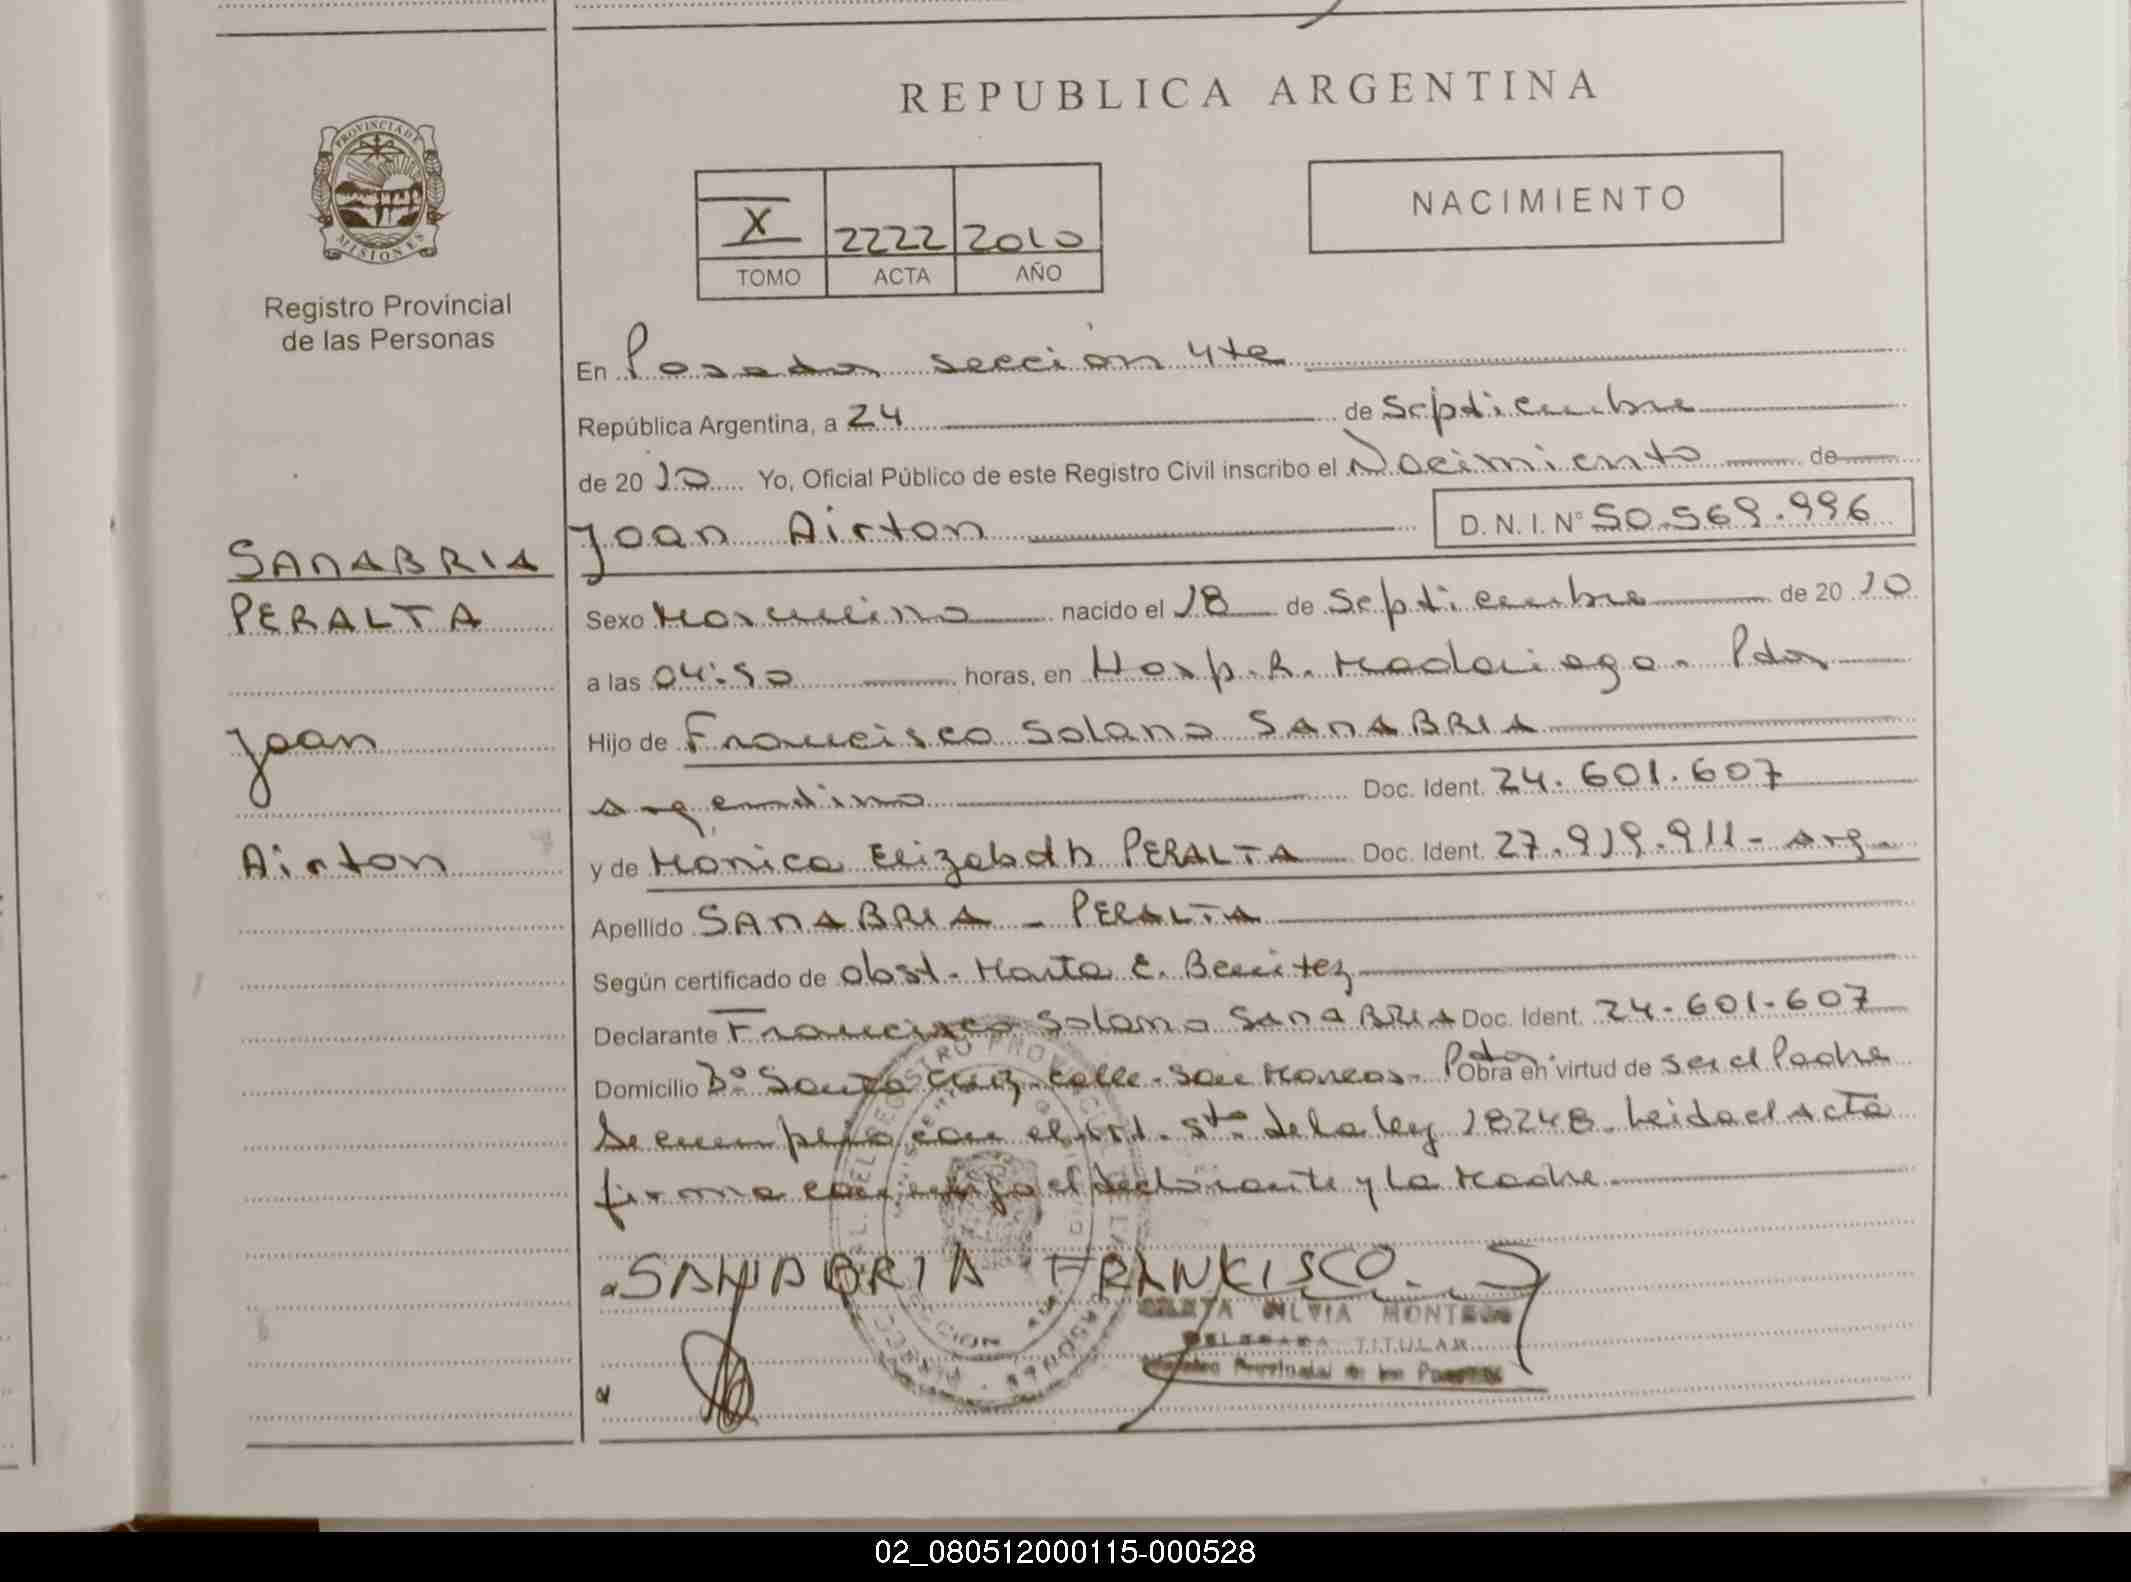 REPUBLICA ARGENTINA
PROVINCIA DE
MISIONES
Registro Provincial
de las Personas
X 2222 2010
TOMO ACTA AÑO
NACIMIENTO
En Posadas sección 4ta
República Argentina, a 24 de Septiembre
de 2010 Yo, Oficial Público de este Registro Civil inscribo el Nacimiento de
Joan Airton D. N. I. N° 50.569.996
SANABRIA
PERALTA
Joan
Airton
Sexo Masculino nacido el 18 de Septiembre de 2010
a las 04:50 horas, en Hosp. R. Madariaga. Pdas
Hijo de Francisco Solano SANABRIA
argentino Doc. Ident. 24.601.607
y de Mónica Elizabeth PERALTA Doc. Ident. 27.919.911- arg.
Apellido SANABRIA - PERALTA
Según certificado de obst. Marta E. Benitez
Declarante Francisco Solano SANABRIA Doc. Ident. 24.601.607
Domicilio B° Santa Cruz. calle. San Marcos. Pdas. Obra en virtud de ser el Padre
Se cumplió con el art. 5to de la ley 18248. Leida el acta
firma conmigo el declarante y la Madre
SANABRIA FRANCISCO.
SILVIA MONTE
DELEGADA TITULAR
Registro Provincial de las Personas
02_080512000115-000528